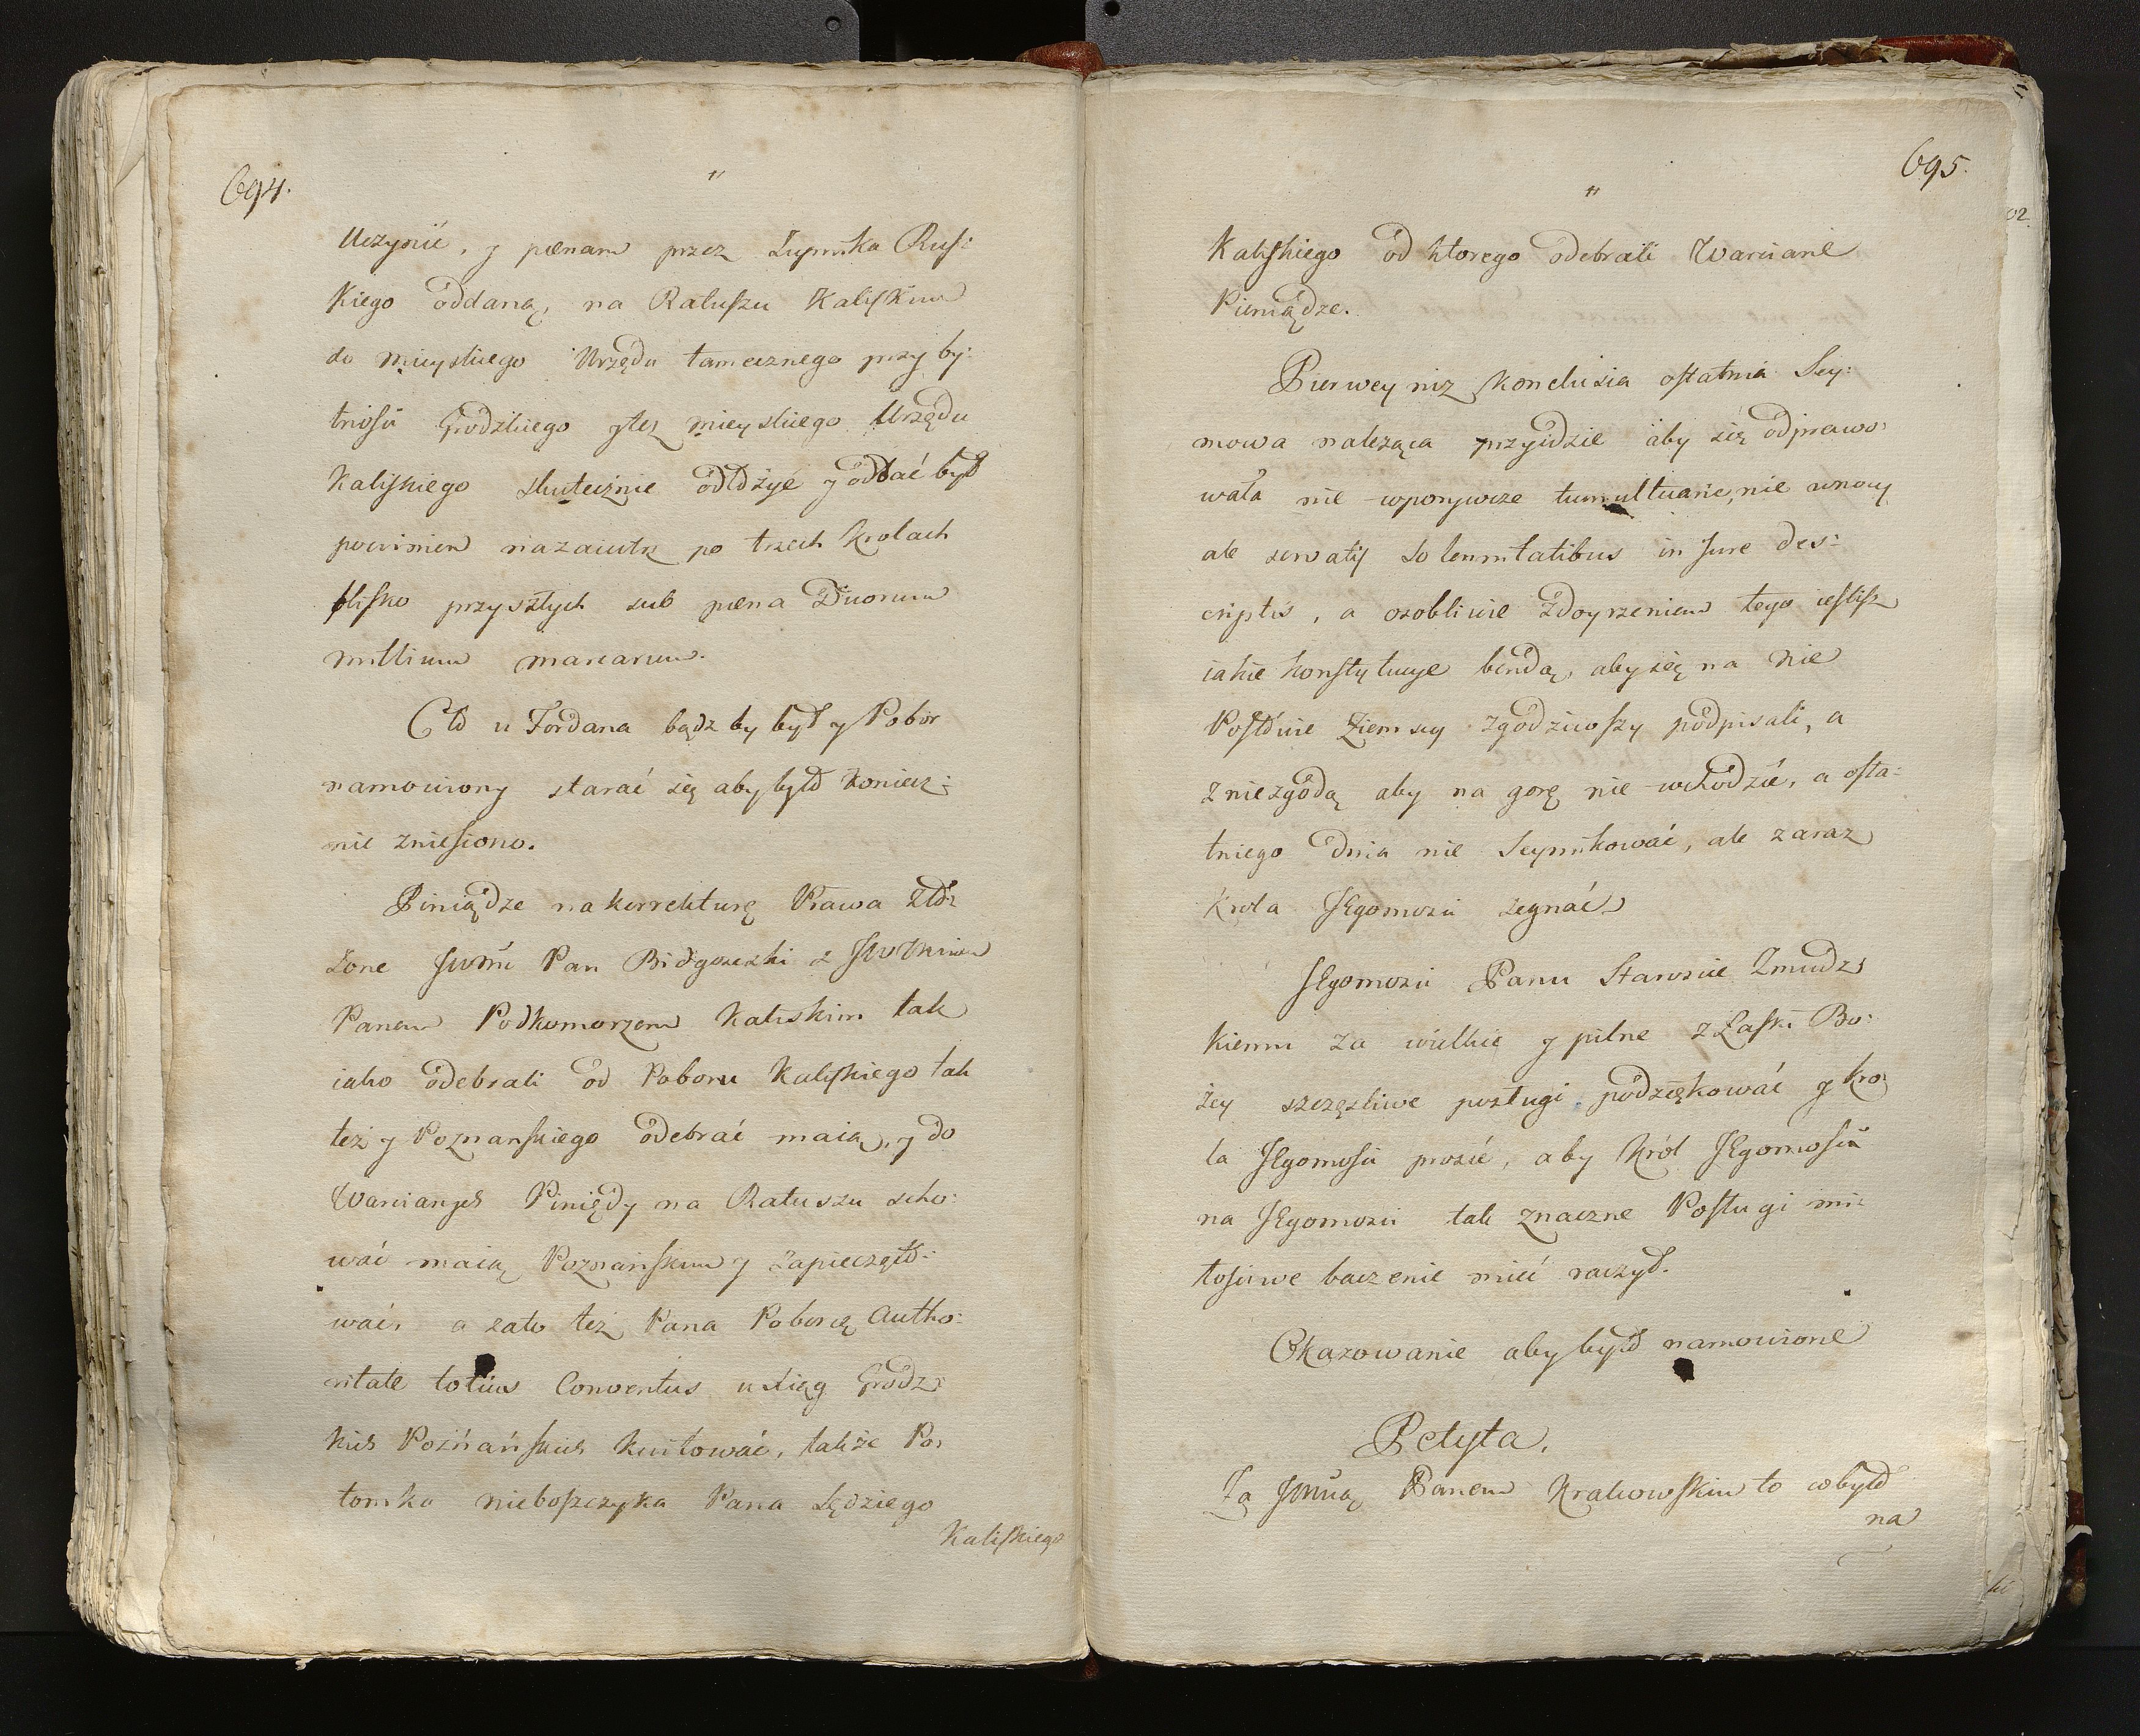 694.
Uczynić, y pœnam przez Żupnika Rus:
kiego oddaną, na Ratuszu Kaliskim
do mieyskiego Urzędu tamecznego przy by:
tności Grodzkiego y tez mieyskiego Urzędu
Kaliskiego skutecznie odłożyć y oddać był
powinien nazaiutrz po trzech Krolach
blisko przyszłych sub pœna Duorum
millium marcarum.
Cło u Fordana bądz by był y Pobor
namowiony starać się aby było koniecz:
nie zniesiono.
Piniądze na korrekturę Prawa zło:
żone Jwmć Pan Bidgoszcki z
Panem Podkomorzem Kaliskim tak
iako odebrali od Poboru Kaliskiego tak
też y Poznanskiego odebrać maią, y do
Warcianych Piniędzy na Ratuszu scho:
wać maią Poznańskim y zapieczęto:
wać, a zato też Pana Poborcę Autho:
ritate totius Conventus u xiąg Grodz:
kich Poznańskich kwitować, także Po:
tomka nieboszczyka Pana Sędziego
Kaliskiego
695.
Kaliskiego od ktorego odebrali Warcianie
Pieniądze.
Pierwey niz konclusia ostatnia Sey:
mowa naleząca przyidzie aby się odprawo:
wała nie wporywcze tumultuarie, nie w nocy
ale servatis solennitatibus in Jure des:
criptis, a osobliwie zdoyrzeniem tego iesliż
iakie konstytucye bendą, aby się na nie
Posłowie Ziemscy zgodziwszy podpisali, a
z niezgodą aby na gorę nie wchodzić, a osta:
tniego dnia nie Seymikować, ale zaraz
Krola JEgomosci zegnać
JEgomosci Panu Staroscie Zmudz:
kiemu za wielkie y pilne z Łaski Bo:
żey szczęsliwe posługi podziękować y Kro:
la JEgomosci prosić, aby Król JEgomość
na JEgomosci tak znaczne Posługi mi:
łościwe baczenie mieć raczył.
Okazowanie aby było namowione
Petyta.
Za Jmcią Panem Krakowskim to co było
na